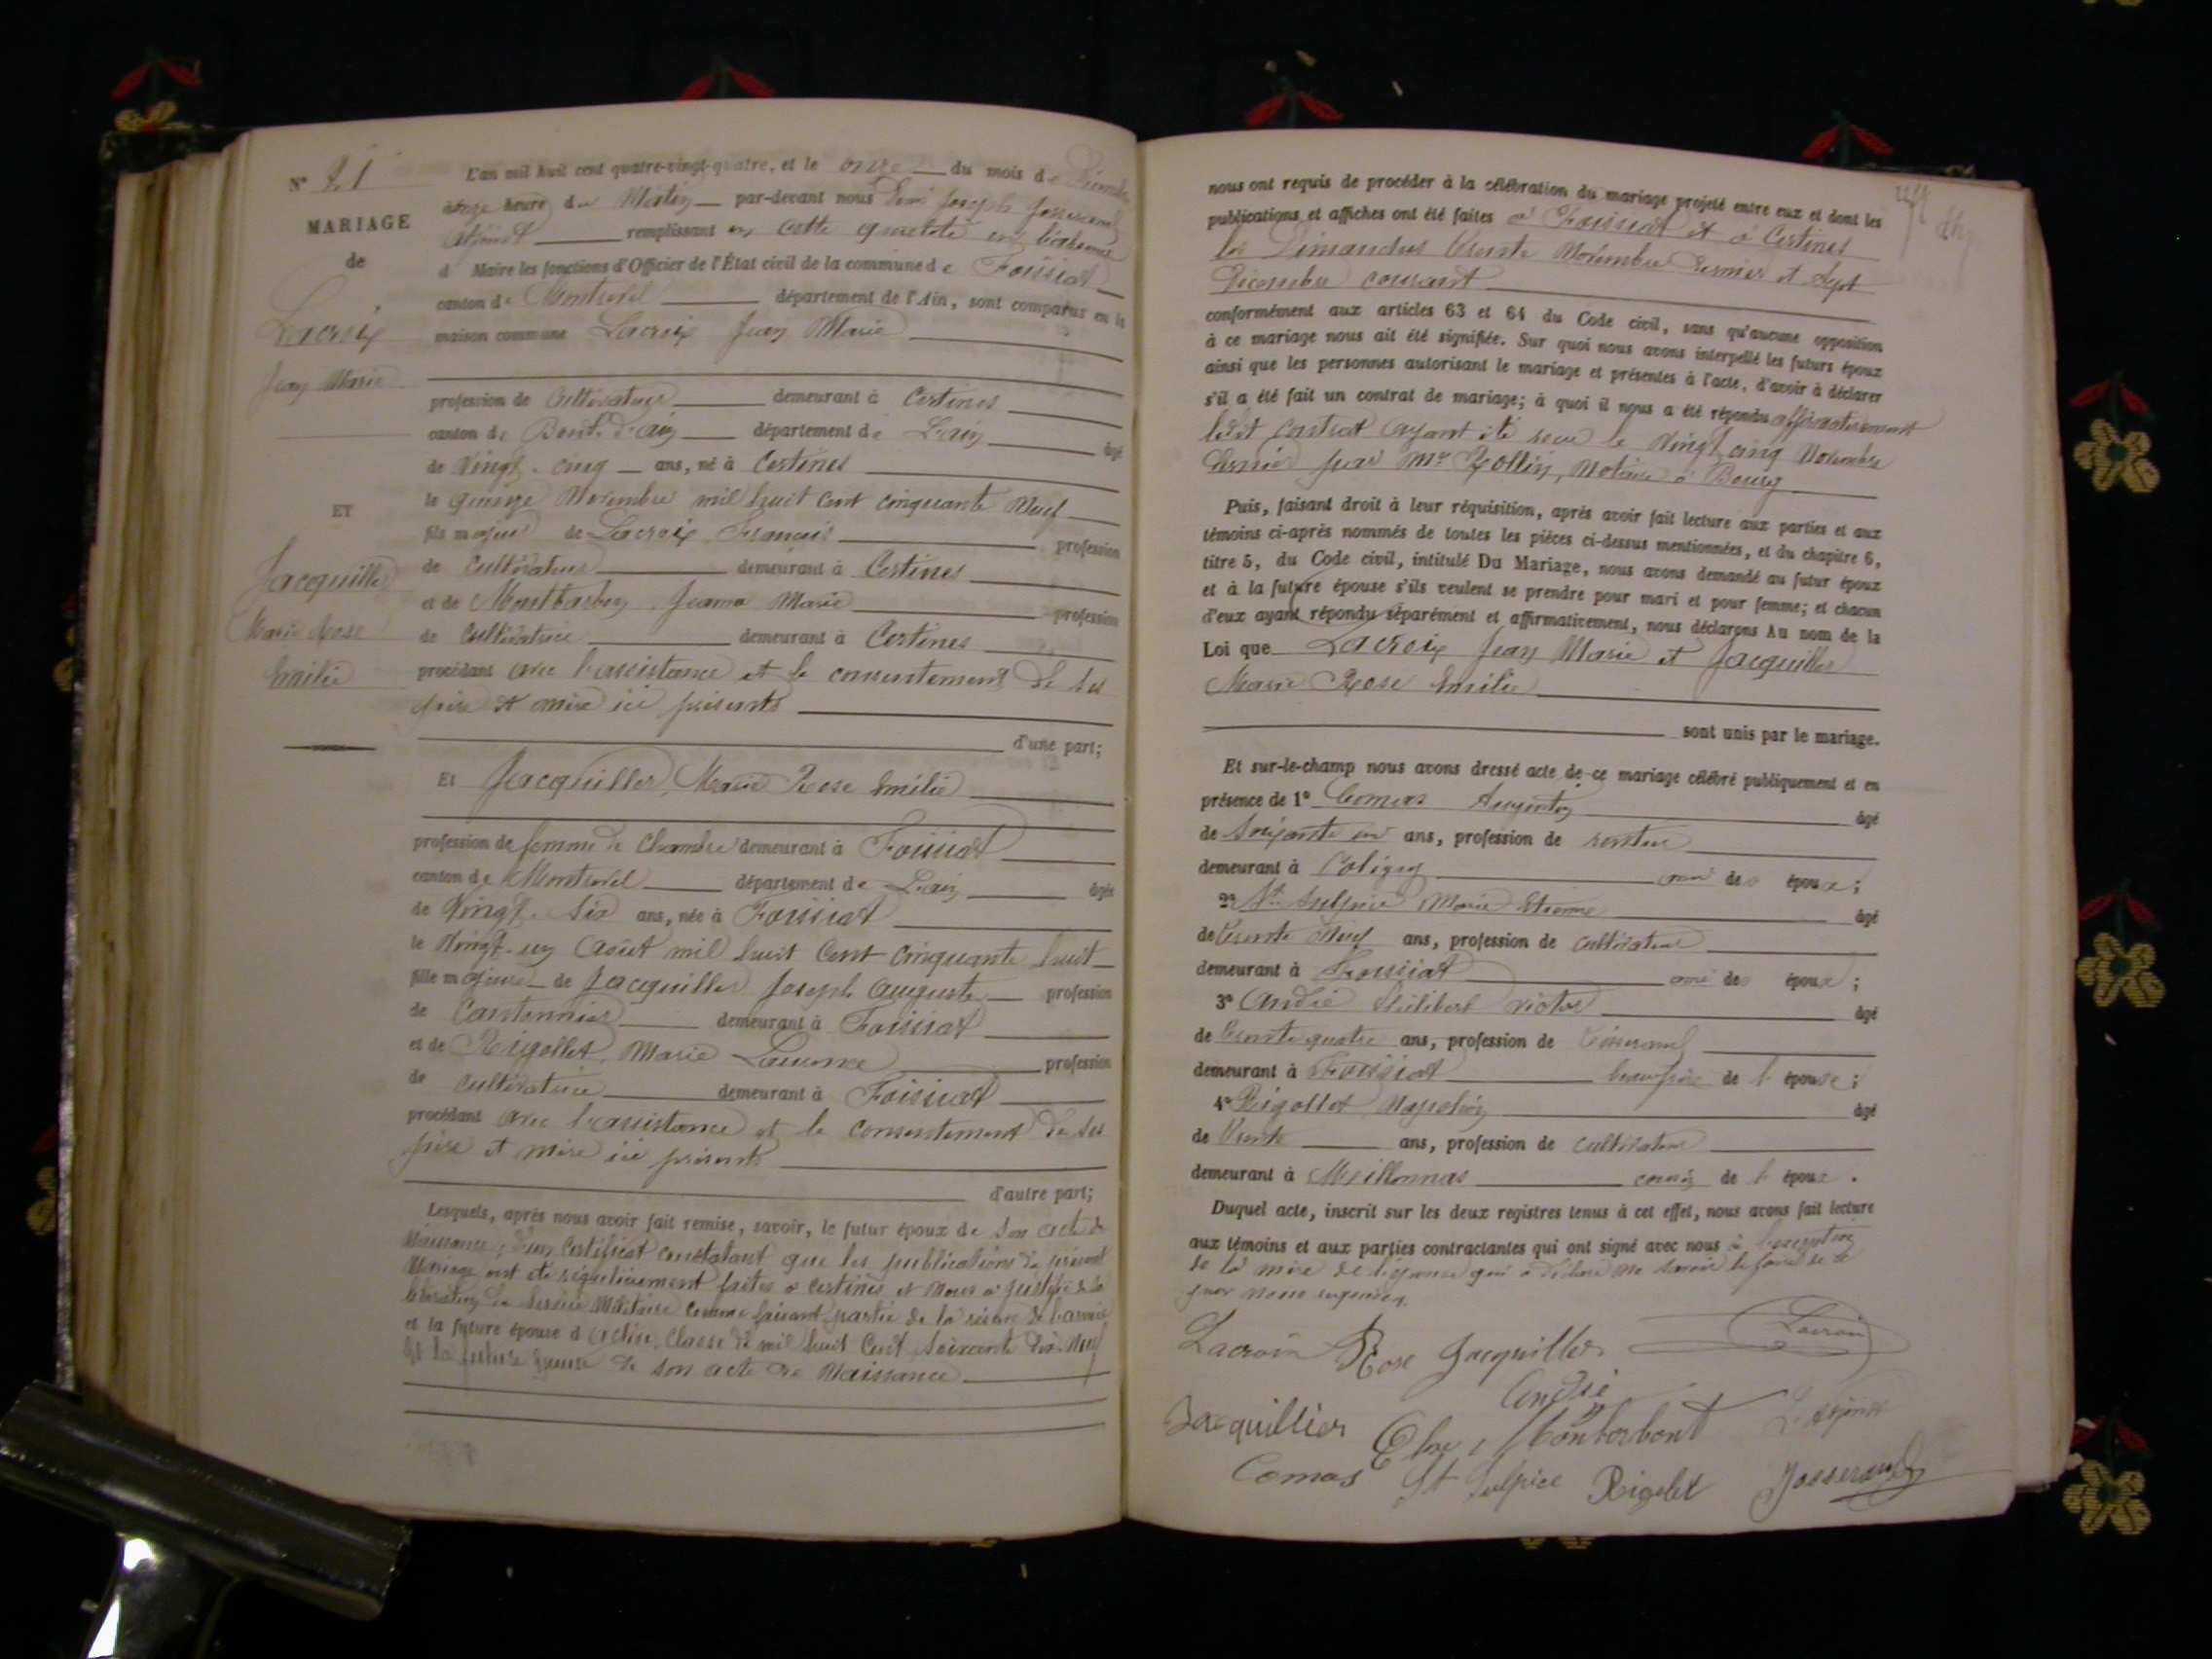 N° 21
MARIAGE
de
Lacroix
Jean Marie
ET
Jacquiller
Marie Rose
Emilie
L'an mil huit cent quatre-vingt-quatre, et le onze du mois de Décembre
à onze heure du Matin par-devant nous Joseph Josserand
Adjoint remplissant en cette qualité en
d Maire les fonctions d'Officier de l'État civil de la commune de Foissiat
canton de Montrevel département de l'Ain, sont comparus en la
maison commune Lacroix Jean Marie
profession de Cultivateur demeurant à Certines
canton de Pont d'ain département de L'ain âgé
de Vingt-cinq ans, né à Certines
le quinze Novembre mil huit cent cinquante Neuf
fils majeur de Lacroix François profession
de Cultivateur demeurant à Certines
et de Montbarbon Jeanne Marie profession
de Cultivatrice demeurant à Certines
procédant avec l'assistance et le consentement de ses
père et mère ici présents
d'une part;
Et Jacquiller Marie Rose Emilie
profession de femme de Chambre demeurant à Foissiat
canton de Montrevel département de L'ain âgée
de Vingt-Six ans, née à Foissiat
le Vingt-un Août mil huit Cent Cinquante huit
fille majeure de Jacquiller Joseph Auguste profession
de Cantonnier demeurant à Foissiat
et de Rigollet Marie Laurence profession
de Cultivatrice demeurant à Foissiat
procédant avec l'assistance et le consentement de ses
père et mère ici présents
d'autre part;
Lesquels, après nous avoir fait remise, savoir, le futur époux de Son acte de
Naissance, d'un Certificat constatant que les publications du présent
Mariage ont été régulièrement faites à Certines et Nous a justifié de la
du Service Militaire comme faisant partie de la réserve de l'armée
et la future épouse d active Classe de mil huit Cent Soixante dix-Neuf
Et la future épouse de son acte de Naissance
nous ont requis de procéder à la célébration du mariage projeté entre eux et dont les
publications et affiches ont été faites à Foissiat et à Certines
les Dimanches Trente Novembre dernier et Sept
Décembre courant
conformément aux articles 63 et 64 du Code civil, sans qu'aucune opposition
à ce mariage nous ait été signifiée. Sur quoi nous avons interpellé les futurs époux
ainsi que les personnes autorisant le mariage et présentes à l'acte, d'avoir à déclarer
s'il a été fait un contrat de mariage; à quoi il nous a été répondu affirmativement
ledit Contrat ayant été reçu le Vingt cinq Novembre
dernier par Me Rollin, Notaire à Bourg
Puis, faisant droit à leur réquisition, après avoir fait lecture aux parties et aux
témoins ci-après nommés de toutes les pièces ci-dessus mentionnées, et du chapitre 6,
titre 5, du Code civil, intitulé Du Mariage, nous avons demandé au futur époux
et à la future épouse s'ils veulent se prendre pour mari et pour femme; et chacun
d'eux ayant répondu séparément et affirmativement, nous déclarons Au nom de la
Loi que Lacroix Jean Marie et Jacquiller
Marie Rose Emilie
sont unis par le mariage.
Et sur-le-champ nous avons dressé acte de ce mariage célébré publiquement et en
présence de 1° Comas Augustin âgé
de Soixante un ans, profession de rentier
demeurant à Coligny ami des époux;
2° St Sulpice Marie Etienne âgé
de Trente Neuf ans, profession de cultivateur
demeurant à Foissiat ami des époux;
3° André Philibert Victor âgé
de Trente quatre ans, profession de Tisserand
demeurant à Foissiat beau frère de l'épouse;
4° Rigollet Napoléon âgé
de Trente ans, profession de cultivateur
demeurant à Meillonnas cousin de l'épouse.
Duquel acte, inscrit sur les deux registres tenus à cet effet, nous avons fait lecture
aux témoins et aux parties contractantes qui ont signé avec nous à l'exception
de la mère de l'épouse qui a déclaré ne savoir le faire de ce
par nous requise.
Lacroix Rose Jacquiller Lacroix
André
Jacquillier Montbarbont L'Adjoint
Comas St Sulpice Rigolet Josserand